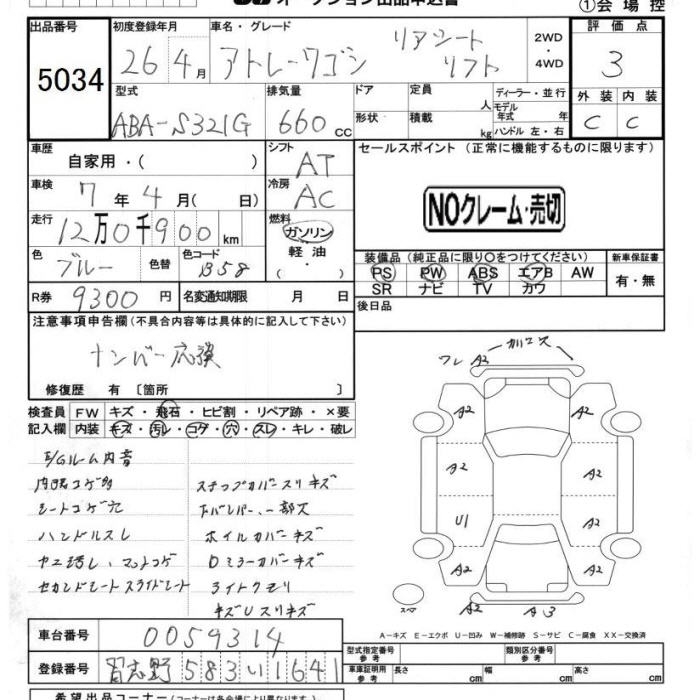 オークション出品申込書
①会場控
出品番号 初度登録年月 車名・グレード 2WD・4WD 評価点
5034 26年4月 アトレーワゴン リアシート リフト 3
型式 排気量 ドア 定員 ディーラー・並行 外装 内装
ABA-S321G 660cc 形状 積載 人 kg モデル年式 年 ハンドル 左・右 C C
車歴 自家用・( ) シフト AT セールスポイント (正常に機能するものに限ります)
車検 7年4月( 日) 冷房 AC
NOクレーム・売切
走行 12万0千900km 燃料 ガソリン 軽油 ( ・ )
色 ブルー 色替 色コード B58
装備品(純正品に限り○をつけてください) 新車保証書
PS PW ABS エアB AW 有・無
SR ナビ TV カワ
R券 9300円 名変通知期限 月 日
後日品
注意事項申告欄(不具合内容等は具体的に記入して下さい)
ナンバー応談
修復歴 有 〔箇所 〕
検査員 FW キズ・飛石・ヒビ割・リペア跡・×要
記入欄 内装 キズ・汚レ・コゲ・穴・スレ・キレ・破レ
E/Gルーム内音
内張コゲ多 ステップカバースリキズ
シートコゲ穴
ハンドルスレ ホイルカバーキズ
Dミラーカバーキズ
セカンドシートスライドシート ライトクモリ
キズUスリキズ
ワレ A2
A2 A2
A2 A2
U1 A2
A2 A2
A3
A-キズ E-エクボ U-凹み W-補修跡 S-サビ C-腐食 XX-交換済
車台番号 0059314
登録番号 習志野 583 い 1641
型式指定番号 参考 類別区分番号 参考
車庫証明用 参考 長さ 幅 高さ
cm cm cm
希望出品コーナー(コーナーは各会場により異なります)